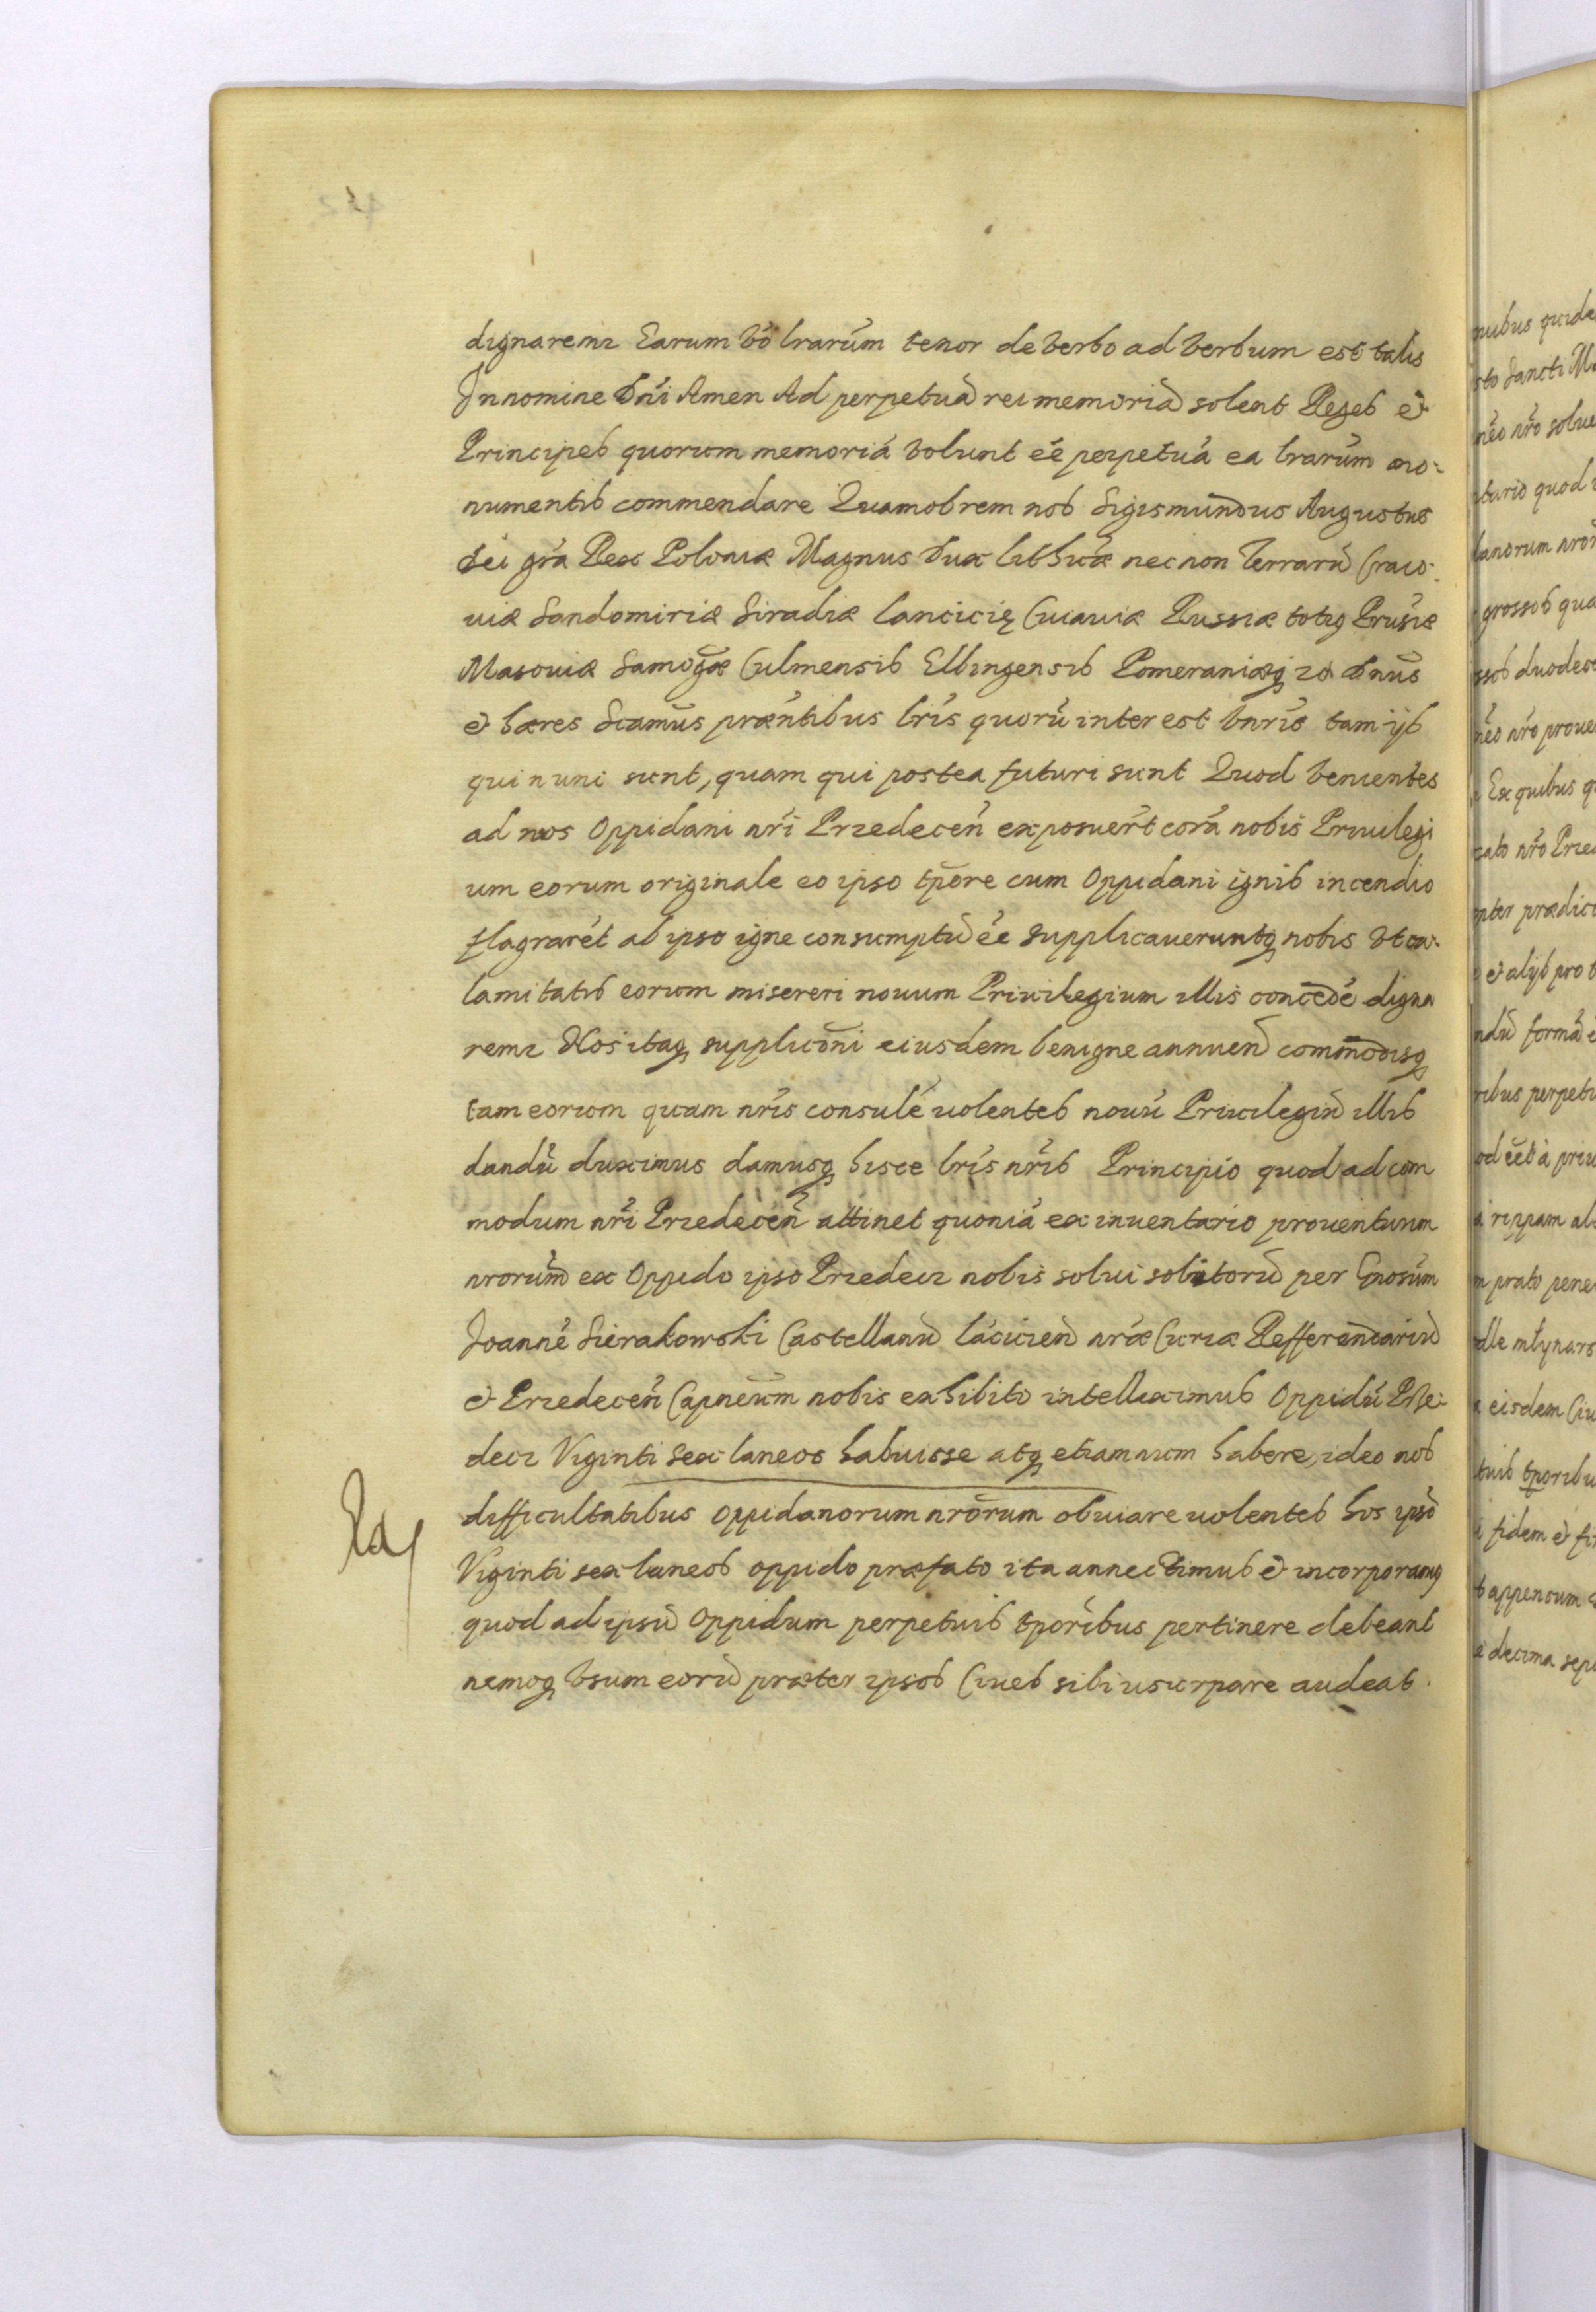 dignaremr Earum vo lrarum tenor de verbo ad verbum est talis
In nomine Dni Amen Ad perpetuā rei memoriā solent Reges et
Principes quorum memoriā volunt eē perpetuā ea lrarum mo-
numentis commendare Quamobrem nos Sigismundus Augustus
Dei gra Rex Poloniæ Magnus Dux Lithuæ nec non Terrarū Craco-
uiæ Sandomiriæ Siradiæ Lancicię Cuiauiæ Russiæ totiq Prusiæ
Masouiæ Samogæ Culmensis Elbingensis Pomeraniæq zc dnus
et hæres Scamus præntibus lris quorū interest vnris tam ijs
qui nunc sunt, quam qui postea futuri sunt Quod venientes
ad nos Oppidani nri Przedecen exposuert corā nobis Priuilegi
um eorum originale eo ipso tpore cum Oppidani ignis incendio
flagraret ab ipso igne consumptū eē supplicaueruntq nobis vt ca-
lamitatis eorum misereri nouum Priuilegium illis concede digna
remr Nos itaq supplicōni eiusdem benigne annuen commodisq
tam eorum quam nris consule uolentes nouū Priuilegiū illis
dandū duximus damusq hisce lris nris Principio quod ad com
modum nri Przedecen attinet quoniā ex inuentario prouentuum
nrorum ex Oppido ipso Przedecz nobis solui solitorū per Gnosum
Joannē Sierakowski Castellanū Lāciciēn nræ Curiæ Refferendariū
et Przedecen Capneum nobis exhibito intelleximus Oppidū Prze-
decz Viginti sex laneos habuisse atq etiamnum habere, ideo nos
difficultatibus Oppidanorum nrorum obuiare uolentes hos ipso
Viginti sex laneos oppido præfato ita annectimus et incorporamq
quod ad ipsū Oppidum perpetuis tporibus pertinere debeant
nemoq vsum eorū præter ipsos Ciues sibi usurpare audeat.